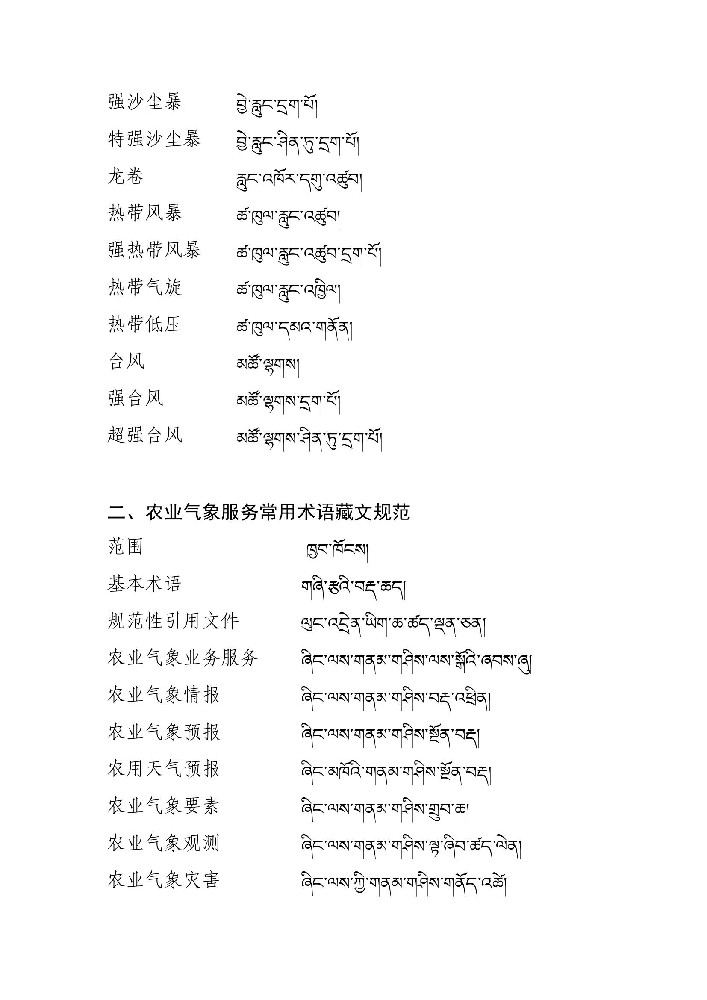 强沙尘暴 བྱེ་རླུང་དྲག་པོ།
特强沙尘暴 བྱེ་རླུང་ཤིན་ཏུ་དྲག་པོ།
龙卷 རླུང་འཁོར་དགུ་འཚུབ།
热带风暴 ཚ་ཁུལ་རླུང་འཚུབ།
强热带风暴 ཚ་ཁུལ་རླུང་འཚུབ་དྲག་པོ།
热带气旋 ཚ་ཁུལ་རླུང་འཁྱིལ།
热带低压 ཚ་ཁུལ་དམའ་གནོན།
台风 མཚོ་ལྷགས།
强台风 མཚོ་ལྷགས་དྲག་པོ།
超强台风 མཚོ་ལྷགས་ཤིན་ཏུ་དྲག་པོ།
二、农业气象服务常用术语藏文规范
范围 ཁྱབ་ཁོངས།
基本术语 གཞི་རྩའི་བརྡ་ཆད།
规范性引用文件 ལུང་འདྲེན་ཡིག་ཆ་ཚད་ལྡན་ཅན།
农业气象业务服务 ཞིང་ལས་གནམ་གཤིས་ལས་སྒོའི་ཞབས་ཞུ།
农业气象情报 ཞིང་ལས་གནམ་གཤིས་བརྡ་འཕྲིན།
农业气象预报 ཞིང་ལས་གནམ་གཤིས་སྔོན་བརྡ།
农用天气预报 ཞིང་མཁོའི་གནམ་གཤིས་སྔོན་བརྡ།
农业气象要素 ཞིང་ལས་གནམ་གཤིས་གྲུབ་ཆ།
农业气象观测 ཞིང་ལས་གནམ་གཤིས་ལྟ་ཞིབ་ཚད་ལེན།
农业气象灾害 ཞིང་ལས་ཀྱི་གནམ་གཤིས་གནོད་འཚེ།